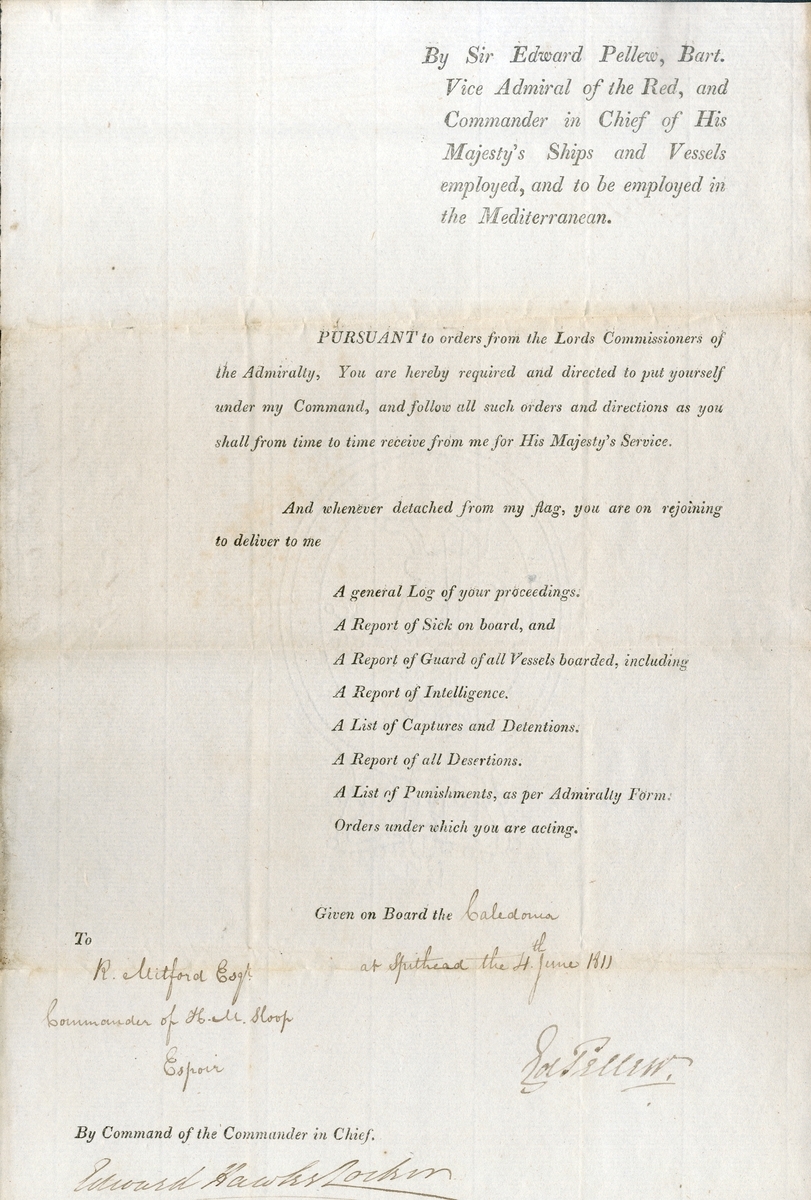 By Sir Edward Pellew, Bart.
Vice Admiral of the Red, and
Commander in Chief of His
Majesty's Ships and Vessels
employed, and to be employed in
the Mediterranean.
PURSUANT to orders from the Lords Commissioners of
the Admiralty, You are hereby required and directed to put yourself
under my Command, and follow all such orders and directions as you
shall from time to time receive from me for His Majesty's Service.
And whenever detached from my flag, you are on rejoining
to deliver to me
A general Log of your proceedings.
A Report of Sick on board, and
A Report of Guard of all Vessels boarded, including
A Report of Intelligence.
A List of Captures and Detentions.
A Report of all Desertions.
A List of Punishments, as per Admiralty Form.
Orders under which you are acting.
Given on Board the Caledonia
at Spithead the 4th June 1811
To
R. Mitford Esqr.
Commander of H.M. Sloop
Espoir
Ed Pellew.
By Command of the Commander in Chief.
Edward Hawke Locker